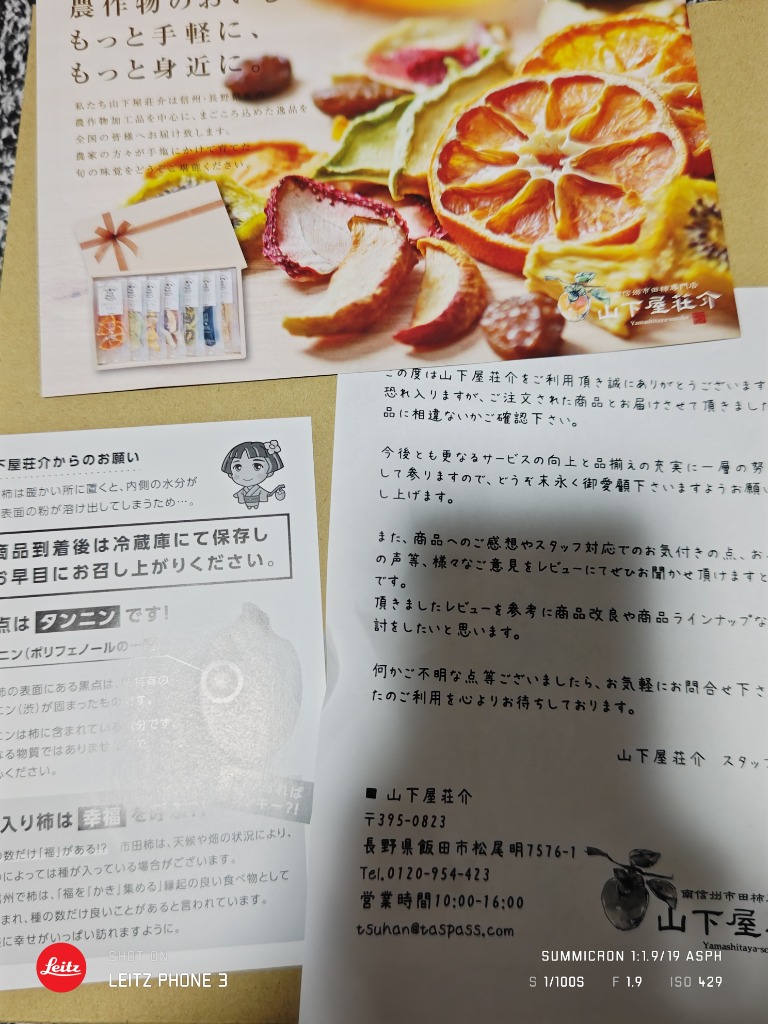 農作物のおいし
もっと手軽に、
もっと身近に。
私たち山下屋荘介は信州・長野
農作物加工品を中心に、まごころ込めた逸品を
全国の皆様へお届け致します。
農家の方々が手塩にかけて育てた
旬の味覚をどうぞご堪能ください。
南信州市田柿専門店
山下屋荘介
Yamashitaya-sosuke
下屋荘介からのお願い
柿は暖かい所に置くと、内側の水分が
表面の粉が溶け出してしまうため…。
商品到着後は冷蔵庫にて保存し
お早目にお召し上がりください。
点は タンニン です!
ニン(ポリフェノールの一種)
柿の表面にある黒点は、柿特有の
ニン(渋)が固まったものです。
ニンは柿に含まれている成分です。
なる物質ではありません
心ください。
入り柿は 幸福 を
の数だけ「福」がある!? 市田柿は、天候や畑の状況により、
によっては種が入っている場合がございます。
信州で柿は、「福を「かき」集める」縁起の良い食べ物として
まれ、種の数だけ良いことがあると言われています。
に幸せがいっぱい訪れますように。
この度は山下屋荘介をご利用頂き誠にありがとうございます
恐れ入りますが、ご注文された商品とお届けさせて頂きました
品に相違ないかご確認下さい。
今後とも更なるサービスの向上と品揃えの充実に一層の努
して参りますので、どうぞ末永く御愛顧下さいますようお願い
し上げます。
また、商品へのご感想やスタッフ対応でのお気付きの点、お
の声等、様々なご意見をレビューにてぜひお聞かせ頂けますと
です。
頂きましたレビューを参考に商品改良や商品ラインナップな
討をしたいと思います。
何かご不明な点等ございましたら、お気軽にお問合せ下さ
たのご利用を心よりお待ちしております。
山下屋荘介 スタッフ
■ 山下屋荘介
〒395-0823
長野県飯田市松尾明7576-1
Tel.0120-954-423
営業時間10:00-16:00
tsuhan@taspass.com
南信州市田柿
山下屋
Yamashitaya-so
Leitz
SHOT ON
LEITZ PHONE 3
SUMMICRON 1:1.9/19 ASPH
S 1/100S F 1.9 ISO 429